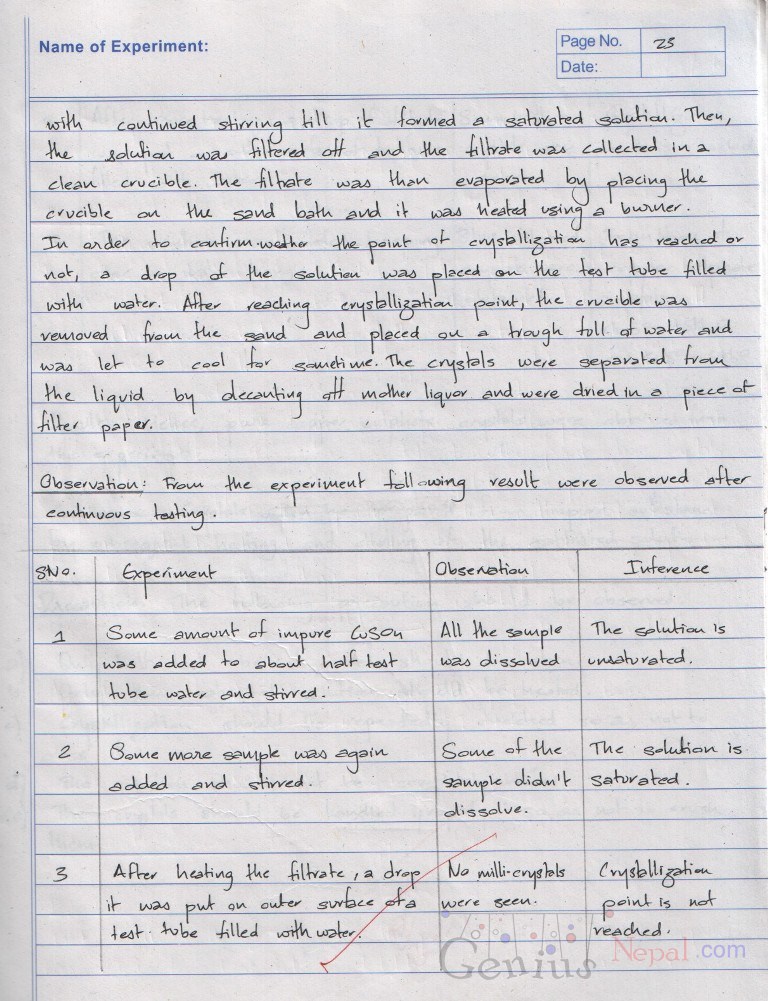 Name of Experiment:
Page No. 23
Date:
with continued stirring till it formed a saturated solution. Then,
the solution was filtered off and the filtrate was collected in a
clean crucible. The filtrate was than evaporated by placing the
crucible on the sand bath and it was heated using a burner.
In order to confirm wether the point of crystallization has reached or
not, a drop of the solution was placed on the test tube filled
with water. After reaching crystallization point, the crucible was
removed from the sand and placed on a trough full of water and
was let to cool for sometime. The crystals were separated from
the liquid by decanting off mother liquor and were dried in a piece of
filter paper.
Observation: From the experiment following result were observed after
continuous testing.
SNo. Experiment Observation Inference
1 Some amount of impure CuSO4 All the sample The solution is
was added to about half test was dissolved unsaturated.
tube water and stirred.
2 Some more sample was again Some of the The solution is
added and stirred. sample didn't saturated.
dissolve.
3 After heating the filtrate, a drop No milli-crystals Crystallization
it was put on outer surface of a were seen. point is not
test tube filled with water. reached.
Genius Nepal.com